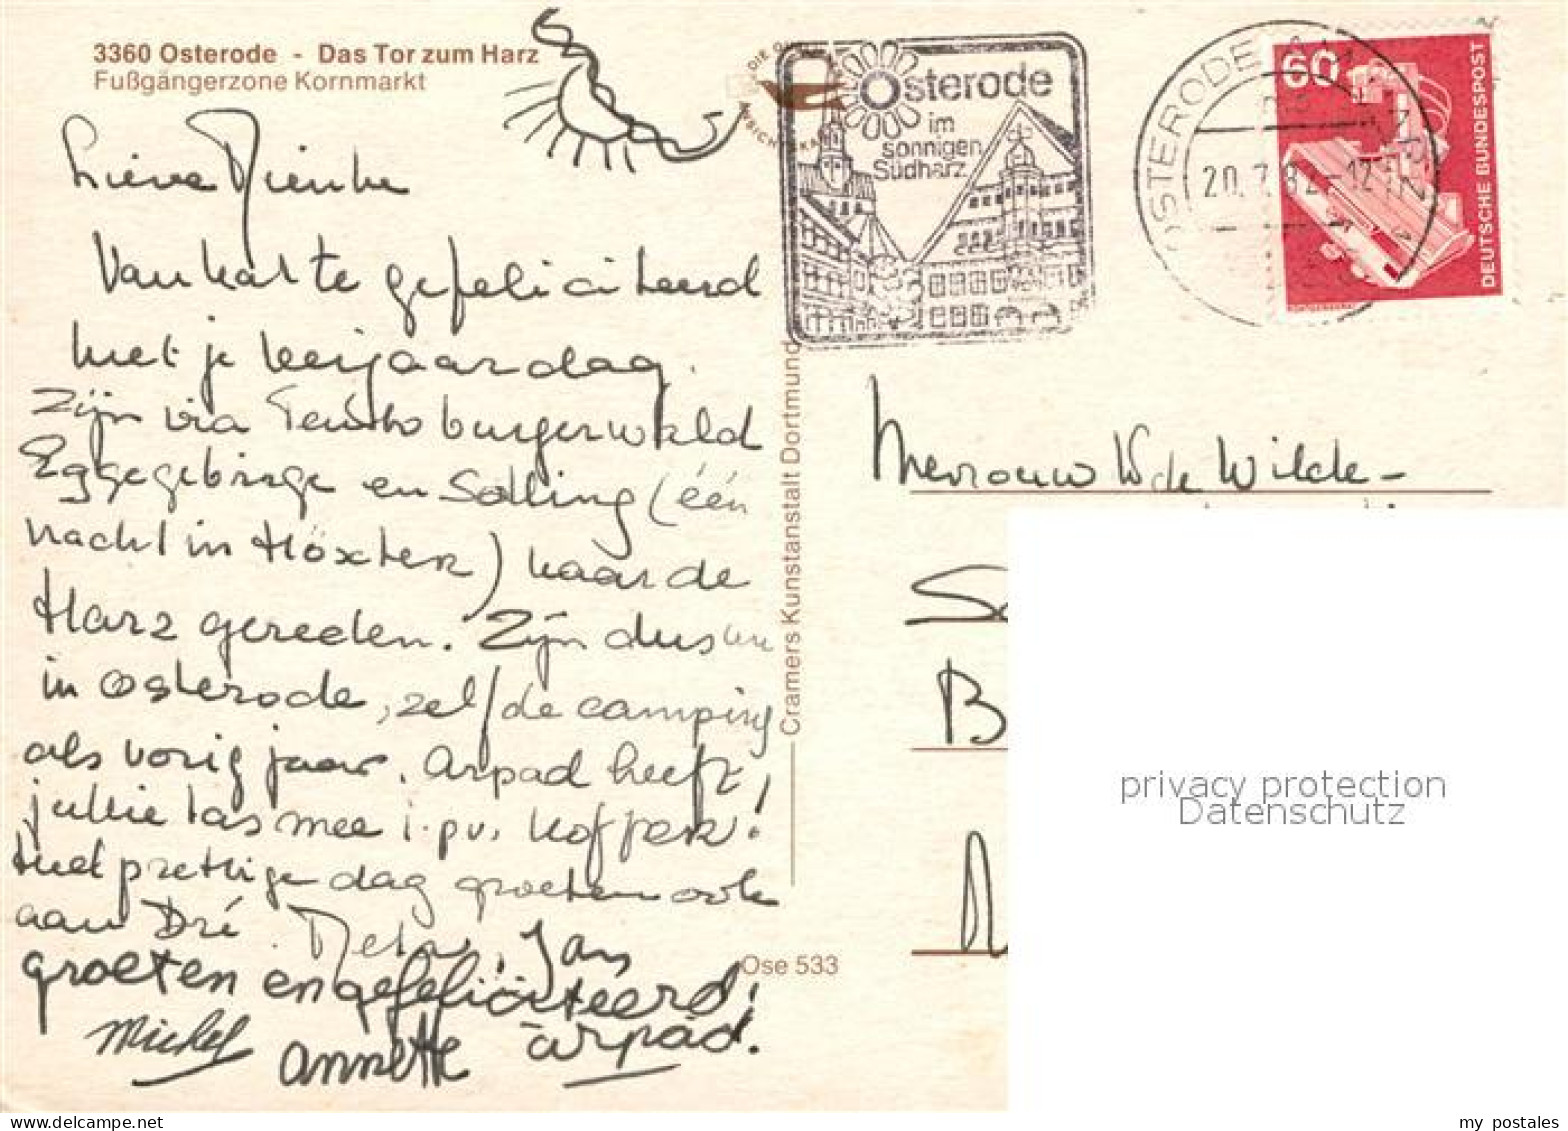 3360 Osterode - Das Tor zum Harz
Fußgängerzone Kornmarkt
Lieve Nienke
Van harte gefeliciteerd
met je verjaardag.
Zijn via Teutoburgerwald
Eggegebirge en Solling (één
nacht in Höxter) naar de
Harz gereden. Zijn dus nu
in Osterode, zelfde camping
als vorig jaar. Arpad heeft
jullie tas mee i.p.v. koffer!
Met prettige dag groeten ook
aan Dré. Jan
groeten en gefeliciteerd!
Michel annette àrpàd.
Osterode
im
sonnigen
Südharz
OSTERODE AM HARZ
20.7.82-12
60
DEUTSCHE BUNDESPOST
Cramers Kunstanstalt Dortmund
Ose 533
Mevrouw de Wilde-
S
B
privacy protection
Datenschutz
my postales